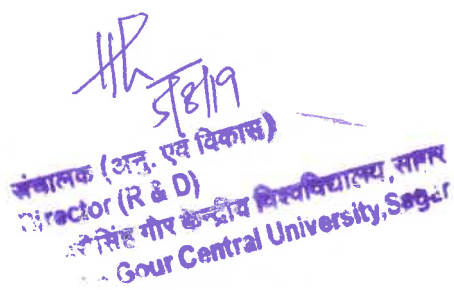 5/8/19
संचालक (अनु. एवं विकास)
Director (R & D)
सिंह गौर केन्द्रीय विश्वविद्यालय, सागर
Gour Central University, Sagar